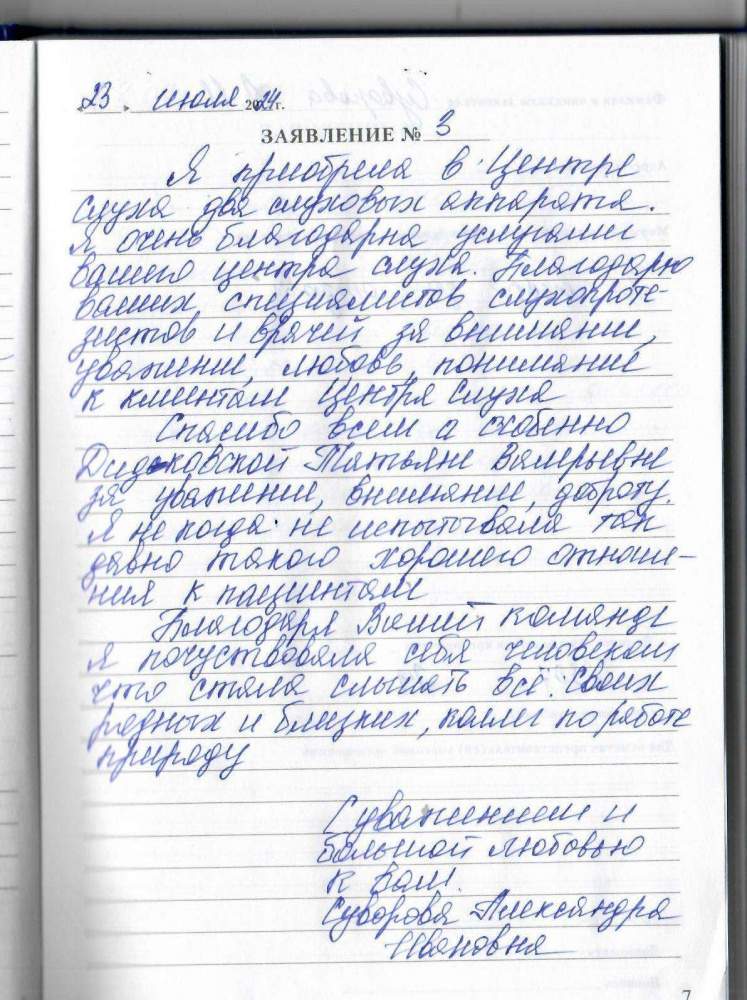 «23» июля 2024г.
ЗАЯВЛЕНИЕ № 3
Я приобрела в Центре
слуха два слуховых аппарата.
Я очень благодарна услугами
вашего центра слуха. Благодарю
ваших специалистов слухопроте-
зистов и врачей за внимание,
уважение, любовь, понимание
к клиентам Центра Слуха
Спасибо всем а особенно
Дидковской Татьяне Валерьевне
за уважение, внимание, доброту.
Я не когда не испытывала так
давно такого хорошего отноше-
ния к пациентам
Благодаря Вашей команде
я почуствовала себя человеком
что стала слышать всё. Своих
родных и близких, коллег по работе
природу
С уважением и
большой любовью
к вам.
Суворова Александра
Ивановна
7